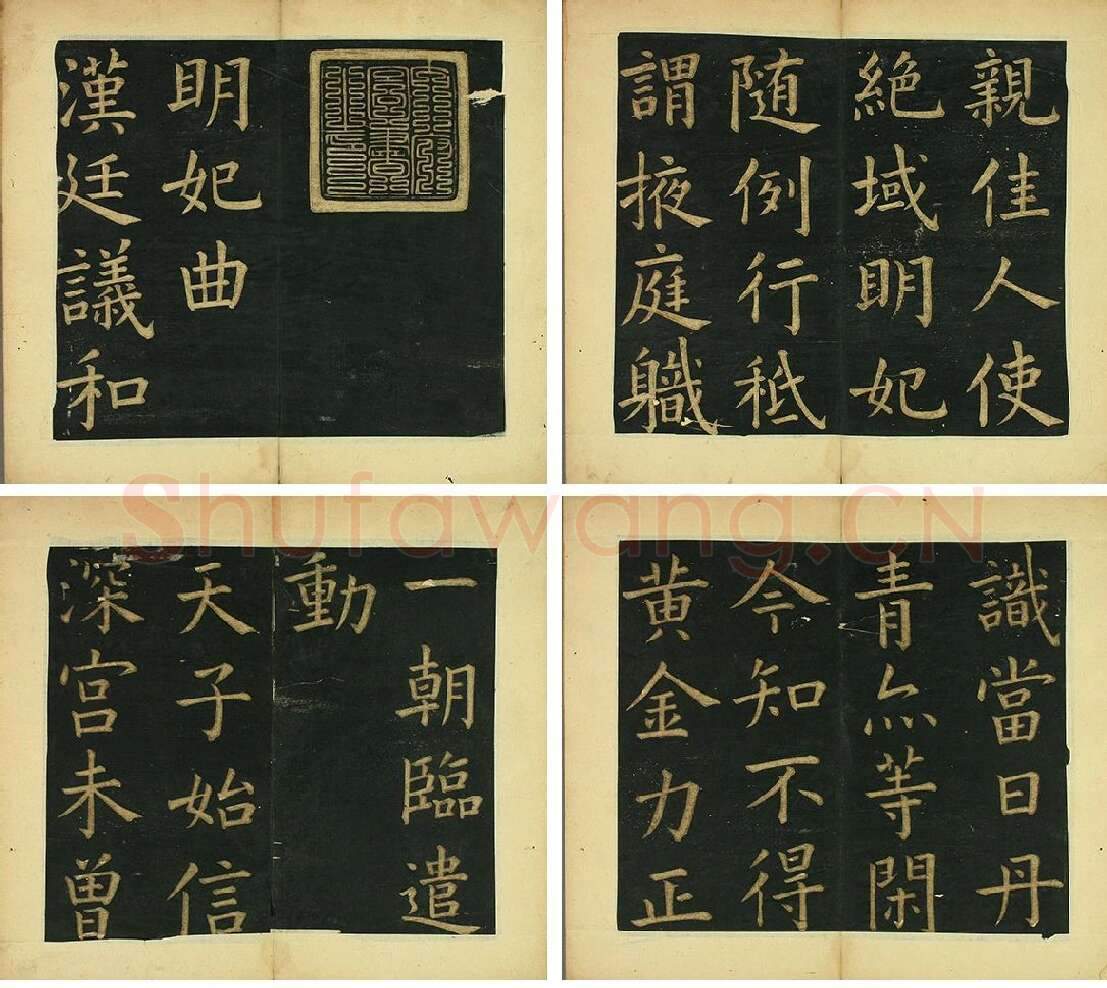 明妃曲
漢廷議和
親佳人使
絶域明妃
随例行秖
謂掖庭職
一朝臨遣
動
天子始信
深宮未曾
識當日丹
青亦等閑
今知不得
黄金力正
Shufawang.CN